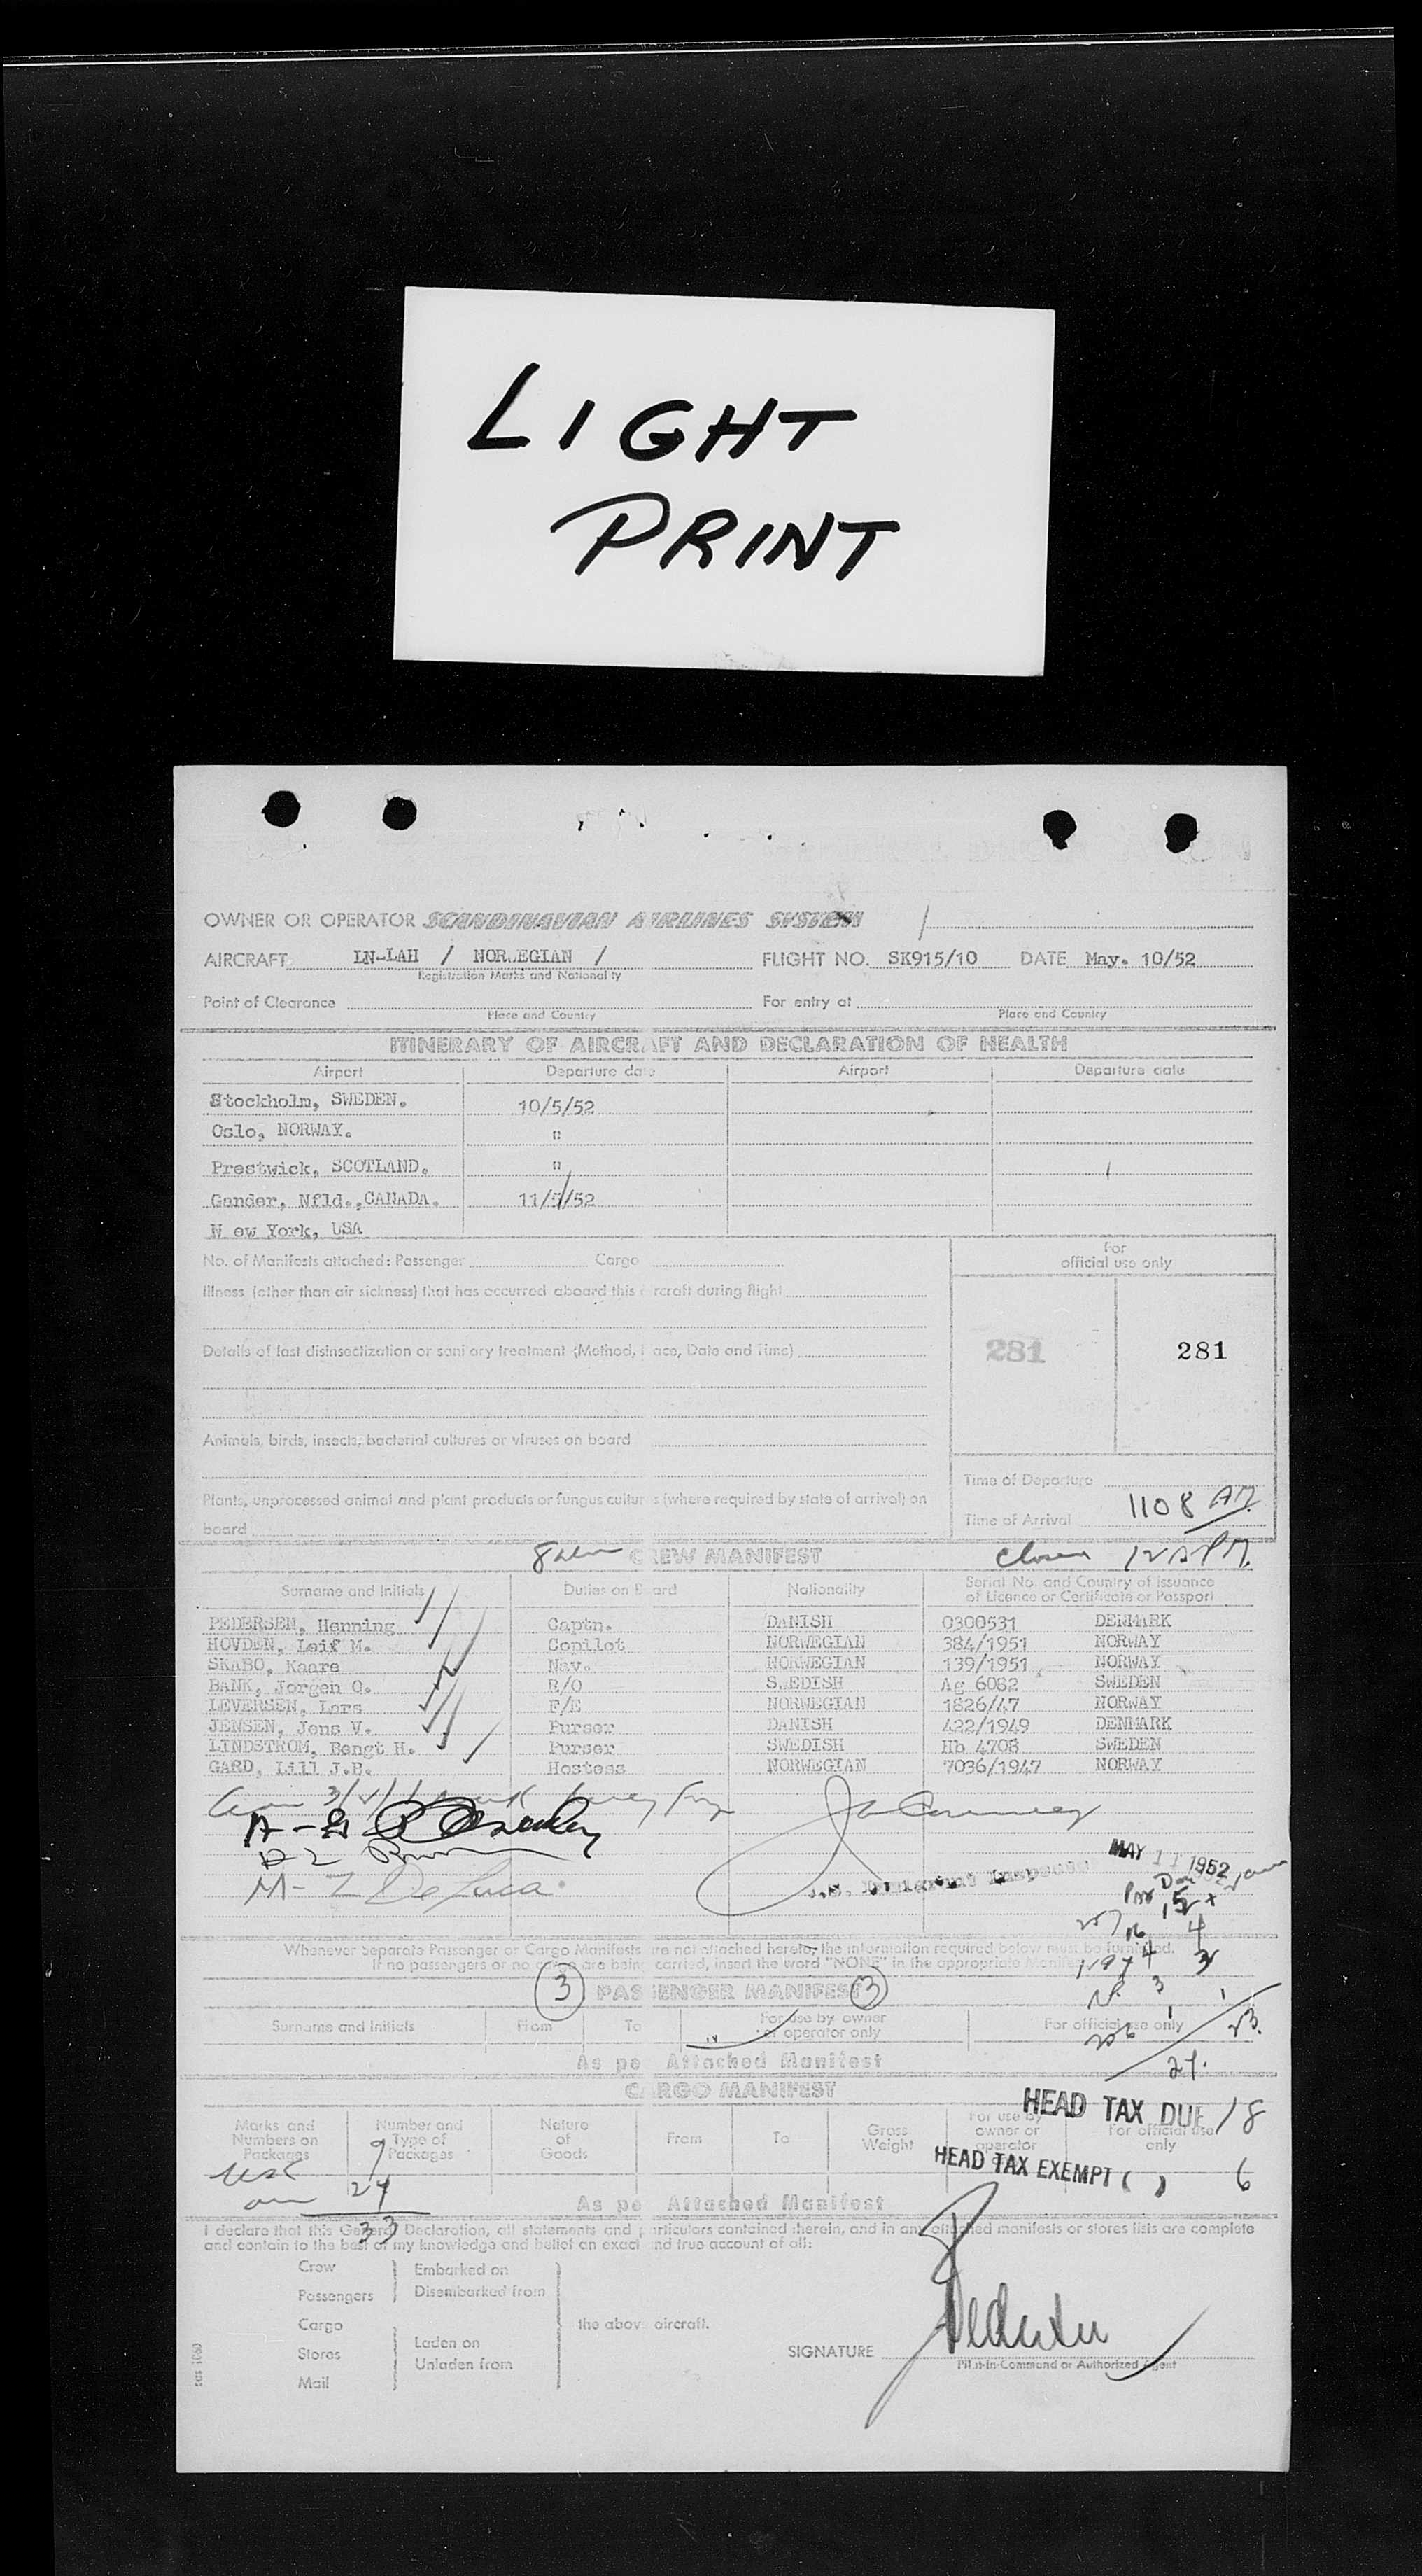 LIGHT
PRINT
OWNER OR OPERATOR SCANDINAVIAN AIRLINES SYSTEM
AIRCRAFT LN-LAH / NORWEGIAN / FLIGHT NO. SK915/10 DATE May. 10/52
Registration Marks and Nationality
Point of Clearance For entry at
Place and Country Place and Country
ITINERARY OF AIRCRAFT AND DECLARATION OF HEALTH
Airport Departure date Airport Departure date
Stockholm, SWEDEN. 10/5/52
Oslo, NORWAY. "
Prestwick, SCOTLAND. "
Gander, Nfld., CANADA. 11/5/52
N ew York, USA
No. of Manifests attached: Passenger Cargo
For
official use only
Illness (other than air sickness) that has occurred aboard this aircraft during flight
281 281
Details of last disinsectization or sanitary treatment (Method, Place, Date and Time)
Animals, birds, insects, bacterial cultures or viruses on board
Time of Departure
Plants, unprocessed animal and plant products or fungus cultures (where required by state of arrival) on
board
Time of Arrival 1108 AM
CREW MANIFEST
Surname and Initials Duties on Board Nationality Serial No. and Country of issuance
of Licence or Certificate or Passport
PEDERSEN, Henning Captn. DANISH 0300531 DENMARK
HOVDEN, Leif M. Copilot NORWEGIAN 384/1951 NORWAY
SKABO, Kaare Nav. NORWEGIAN 139/1951 NORWAY
BANK, Jorgen O. R/O SWEDISH Ag 6082 SWEDEN
LEVERSEN, Lars F/E NORWEGIAN 1826/47 NORWAY
JENSEN, Jens V. Purser DANISH 422/1949 DENMARK
LINDSTROM, Bengt H. Purser SWEDISH Hb 4708 SWEDEN
GARD, Lill J.B. Hostess NORWEGIAN 7036/1947 NORWAY
MAY 11 1952
M-2 DeLuca
U.S. Immigrant Inspector
Whenever Separate Passenger or Cargo Manifests are not attached hereto, the information required below must be furnished.
If no passengers or no cargo are being carried, insert the word "NONE" in the appropriate Manifest.
3 PASSENGER MANIFEST 3
Surname and Initials From To For use by owner
or operator only For official use only
23.
As per Attached Manifest
27.
CARGO MANIFEST
HEAD TAX DUE 18
Marks and
Numbers on
Packages Number and
Type of
Packages Nature
of
Goods From To Gross
Weight For use by
owner or
operator For official use
only
9
HEAD TAX EXEMPT ( ) 6
24
As per Attached Manifest
33
I declare that this General Declaration, all statements and particulars contained therein, and in any attached manifests or stores lists are complete
and contain to the best of my knowledge and belief an exact and true account of all:
Crew Embarked on
Passengers Disembarked from
Cargo the above aircraft.
Stores Laden on
Unladen from
Mail
SIGNATURE
Pilot-in-Command or Authorized Agent